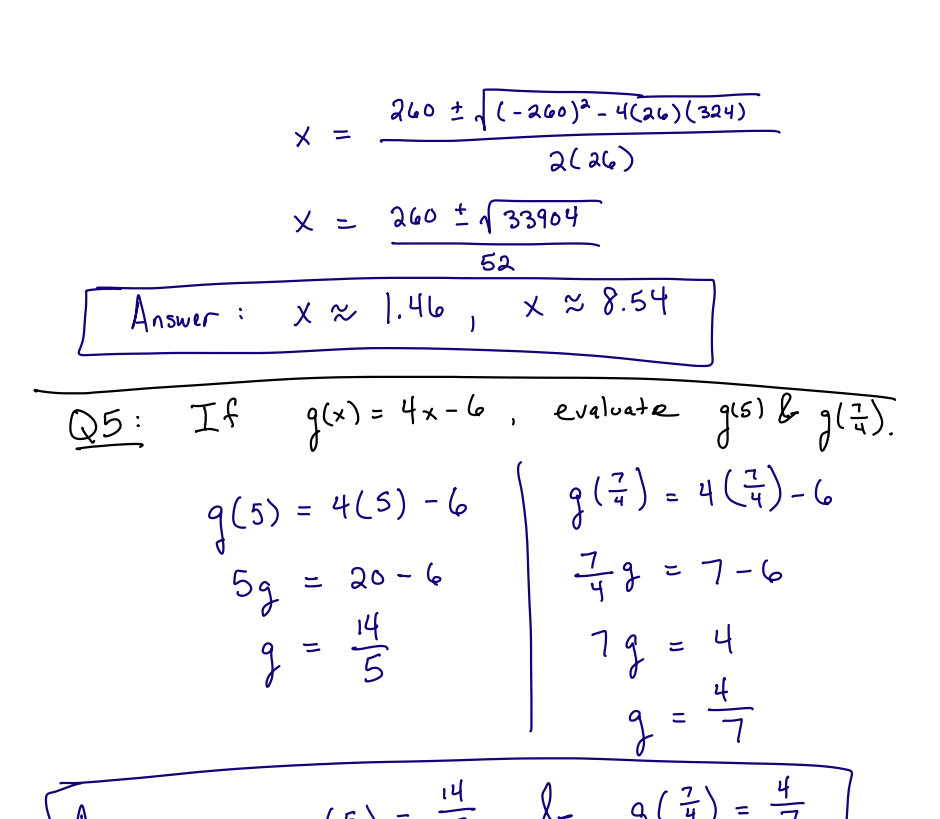 x = (260 ± √((-260)² - 4(26)(324))) / 2(26)
x = (260 ± √33904) / 52
Answer: x ≈ 1.46, x ≈ 8.54
Q5: If g(x) = 4x - 6, evaluate g(5) & g(7/4).
g(5) = 4(5) - 6
5g = 20 - 6
g = 14/5
g(7/4) = 4(7/4) - 6
7/4 g = 7 - 6
7g = 4
g = 4/7
& g(7/4) = 4/7